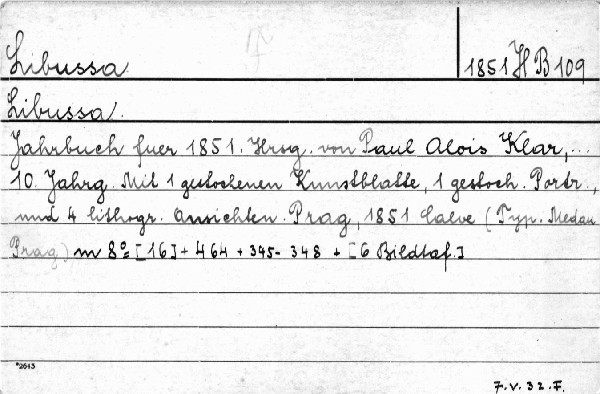 Libussa
1851 H B 109
Libussa.
Jahrbuch fuer 1851. Hrsg. von Paul Alois Klar,...
10. Jahrg. Mit 1 gestochenen Kunstblatte, 1 gestoch. Portr.,
und 4 lithogr. Ansichten. Prag, 1851 Calve (Typ. Medau
Prag) m 8° [16] + 464 + 345-348 + [6 Bildtaf.]
*2643
7.V.32.F.